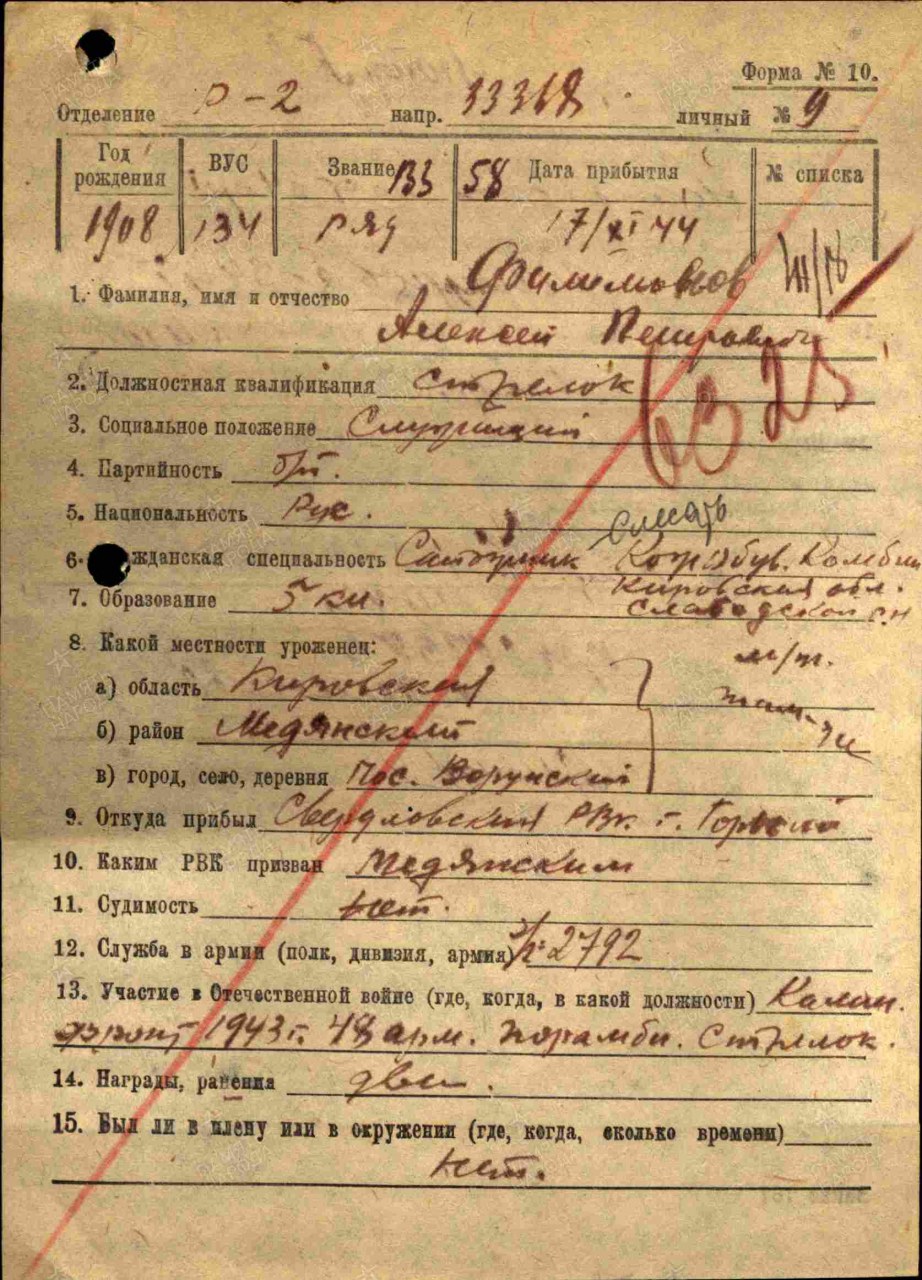 Форма № 10.
Отделение Р-2 напр. 33318 личный № 9
Год рождения ВУС Звание ВЗ 58 Дата прибытия № списка
1908 134 ряд 17/XI 44
1. Фамилия, имя и отчество Филимонов
Алексей Петрович
6325
2. Должностная квалификация стрелок
3. Социальное положение Служащий
4. Партийность б/п.
5. Национальность Рус.
6. жданская специальность Сапожник
Кировская обл.
7. Образование 5 кл.
8. Какой местности уроженец:
а) область Кировская
б) район Медянский
в) город, село, деревня Пос.
9. Откуда прибыл Свердловский РВк. г. Горький
10. Каким РВК призван Медянским
11. Судимость нет.
12. Служба в армии (полк, дивизия, армия) 2792
13. Участие в Отечественной войне (где, когда, в какой должности) Калин.
фронт 1943 г. 48 арм. Стрелок.
14. Награды, ранения две.
15. Был ли в плену или в окружении (где, когда, сколько времени)
нет.